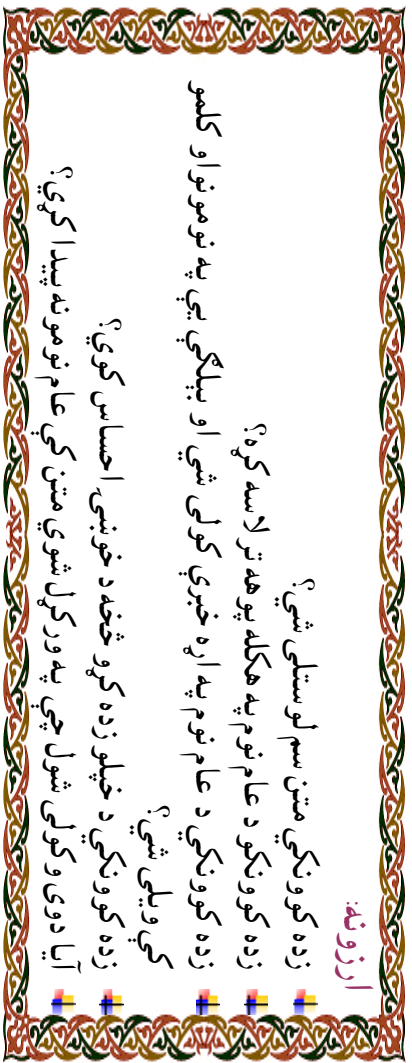 ارزونه:
زده کوونکي متن سم لوستلی شي؟
زده کوونکو د عام نوم په هکله پوهه تر لاسه کړه؟
زده کوونکي د عام نوم په اړه خبرې کولی شي او بېلګې يې په نومونو او کلمو
کې ويلی شي؟
زده کوونکي د خپلو زده کړو څخه د خوښۍ احساس کوي؟
آيا دوی وکولی شول چې په ورکړل شوي متن کې عام نومونه پيدا کړي؟